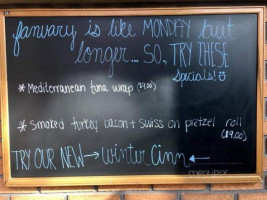 January is like MONDAY but
longer... SO, TRY THESE
Specials!
* Mediterranean tuna wrap ($9.00)
* Smoked turkey bacon + Swiss on pretzel roll
($9.00)
TRY OUR NEW → Winter Cinn ←